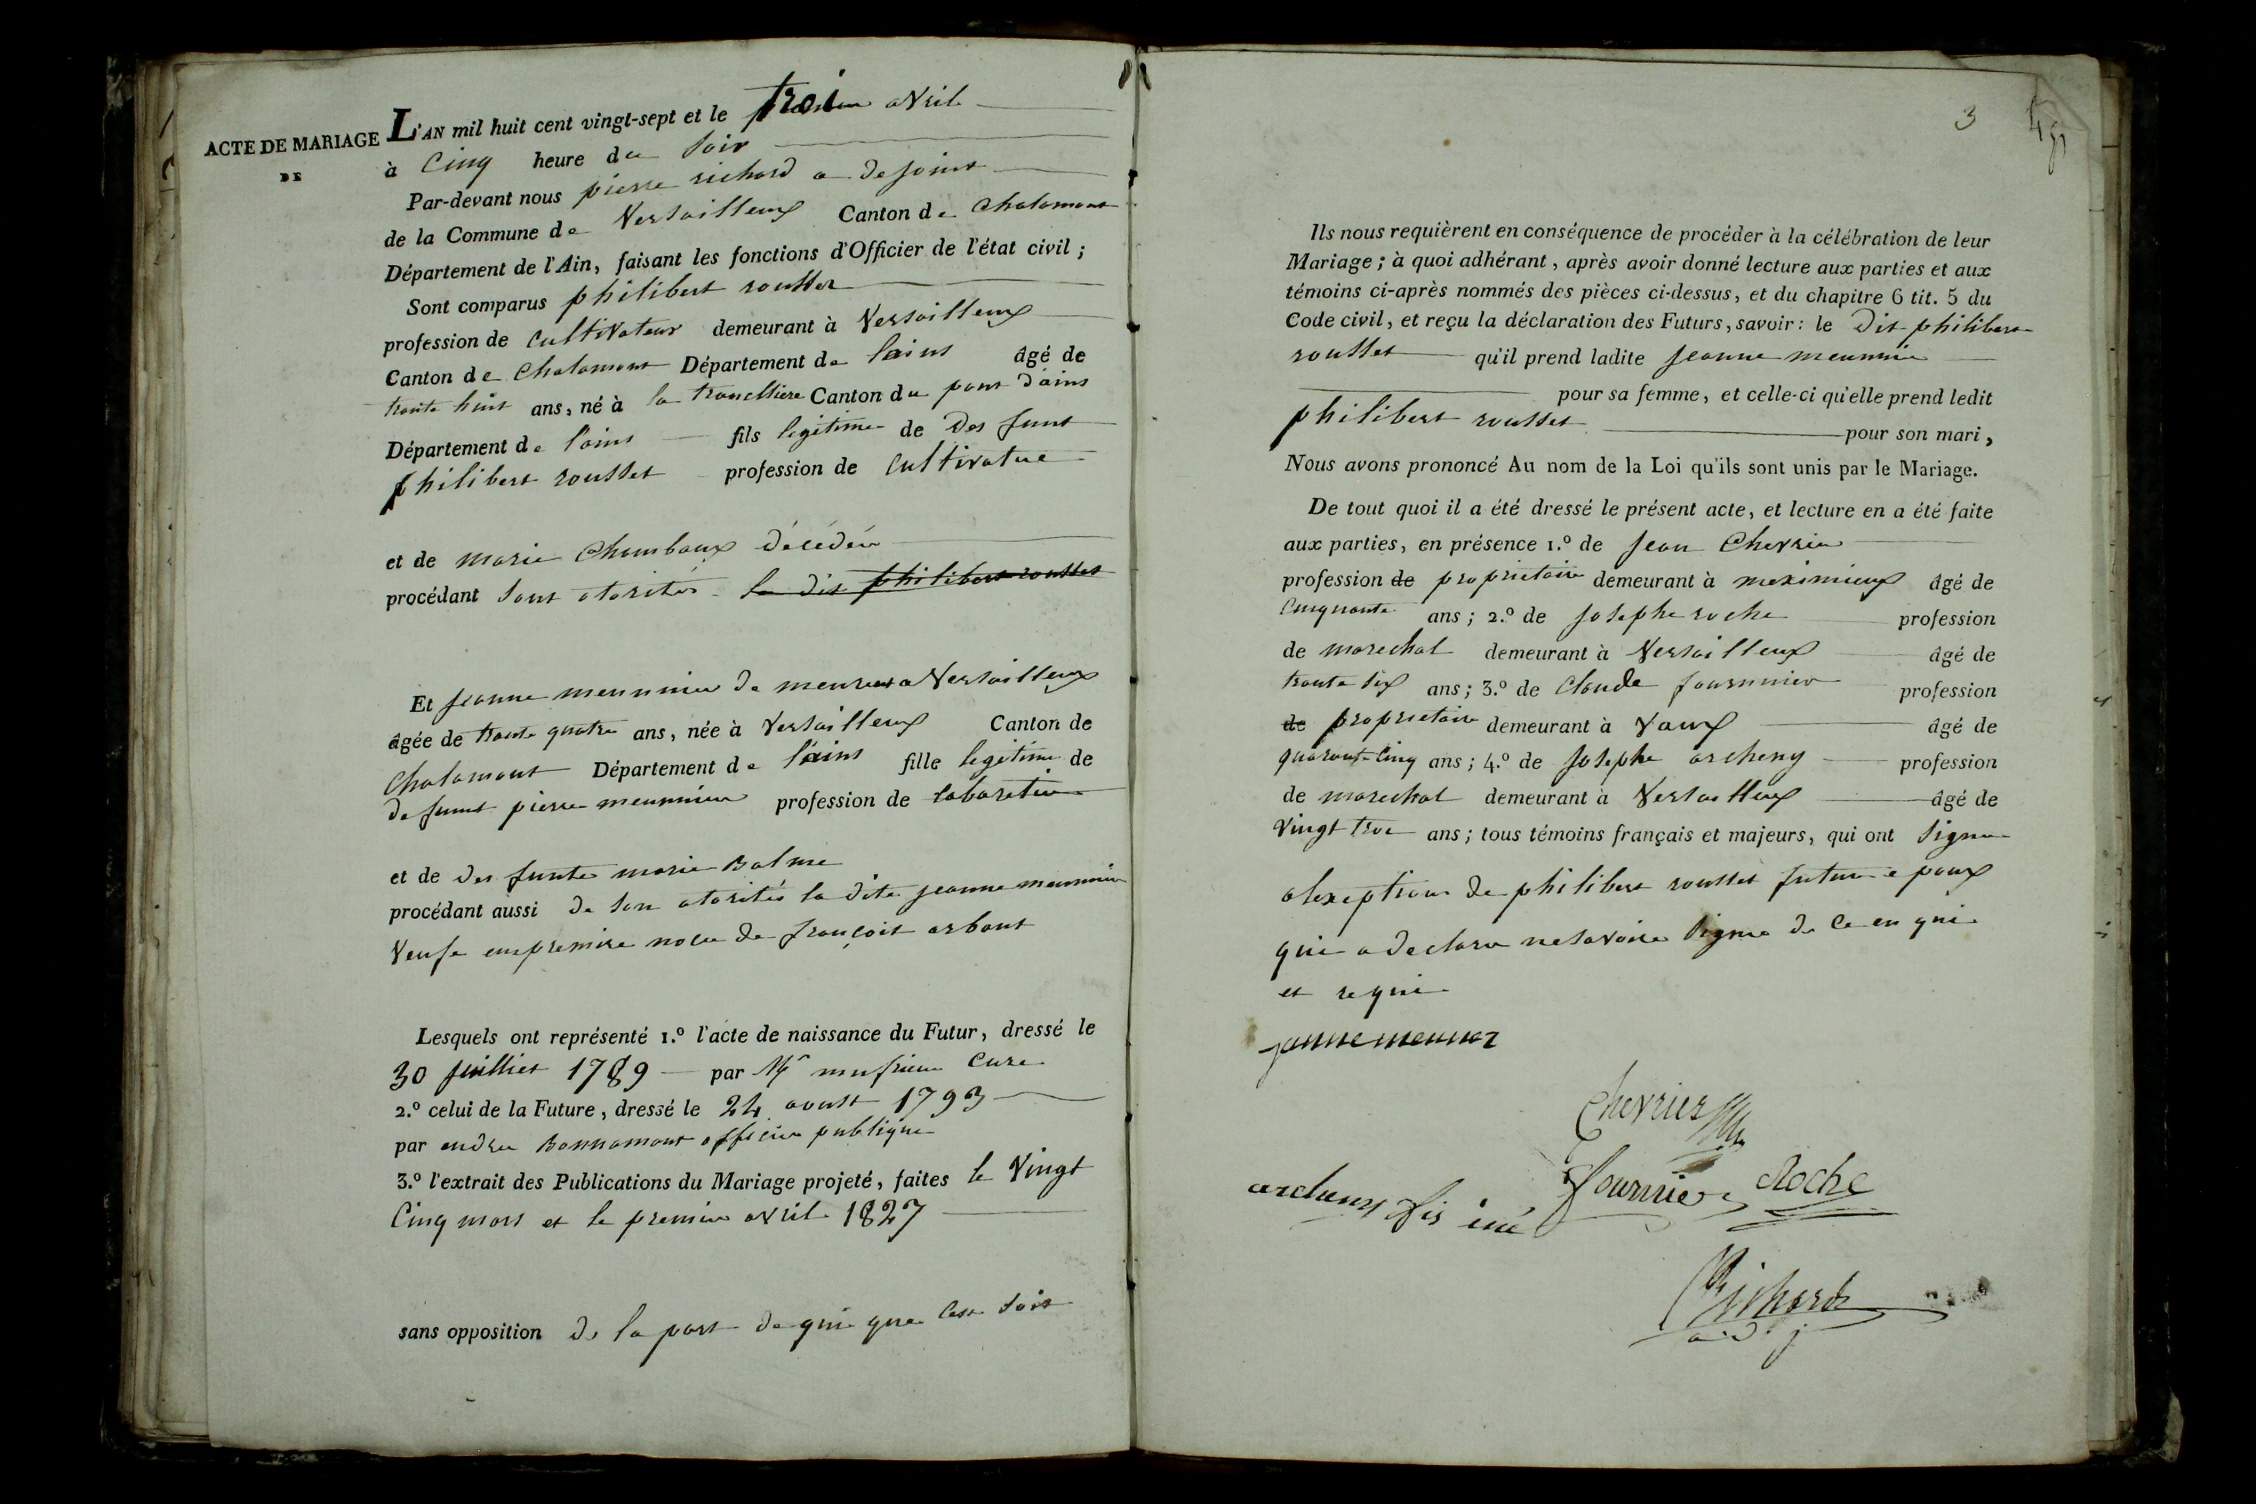 ACTE DE MARIAGE
DE
L'AN mil huit cent vingt-sept et le troi avril
à Cinq heure du soir
Par-devant nous pierre richard a dejoint
de la Commune de Versailleux Canton de Chalamont
Département de l'Ain, faisant les fonctions d'Officier de l'état civil ;
Sont comparus philibert rousset
profession de Cultivateur demeurant à Versailleux
Canton de Chalamont Département de lains âgé de
trante huit ans, né à la trancliere Canton du pont d'ains
Département de l'ains fils legitime de des funt
philibert rousset profession de Cultivatue
et de marie Chumbaux décédée
procédant sous otorités le dit philibert rousset
Et jeanne meunnier de meurent a Versailleux
âgée de trante quatre ans, née à Versailleux Canton de
Chalamont Département de l'ains fille legitime de
de funt pierre meunnier profession de cabaretier
et de des funte marie Balme
procédant aussi de son otorités la dite jeanne meunnier
Veufe enpremire noce de françoit arbant
Lesquels ont représenté 1.º l'acte de naissance du Futur, dressé le
30 juilliet 1789 par Mr Cure
2.º celui de la Future, dressé le 24 avoust 1793
par andre Bonnamour officier publique
3.º l'extrait des Publications du Mariage projeté, faites le Vingt
Cinq mars et le premier avril 1827
sans opposition de la part de qui que Cest soit
3
Ils nous requièrent en conséquence de procéder à la célébration de leur
Mariage ; à quoi adhérant, après avoir donné lecture aux parties et aux
témoins ci-après nommés des pièces ci-dessus, et du chapitre 6 tit. 5 du
Code civil, et reçu la déclaration des Futurs, savoir : le dit philibert
rousset qu'il prend ladite jeanne meunnier
pour sa femme, et celle-ci qu'elle prend ledit
philibert rousset pour son mari,
Nous avons prononcé Au nom de la Loi qu'ils sont unis par le Mariage.
De tout quoi il a été dressé le présent acte, et lecture en a été faite
aux parties, en présence 1.º de jean Chevrier
profession de proprietaire demeurant à meximieux âgé de
Cinquante ans ; 2.º de josephe roche profession
de marechal demeurant à Versailleux âgé de
trante six ans ; 3.º de Claude fournnier profession
de proprietaire demeurant à Vaux âgé de
quarante Cinq ans ; 4.º de josephe archeny profession
de marechal demeurant à Versailleux âgé de
Vingt troi ans ; tous témoins français et majeurs, qui ont signe
alexeption de philibert rousset future epoux
qui a declare nesavoire signe de ce en qui
et requi
jannemeunier
Chevrier
archeny fis iné Fournier Roche
Richard
a. d. j